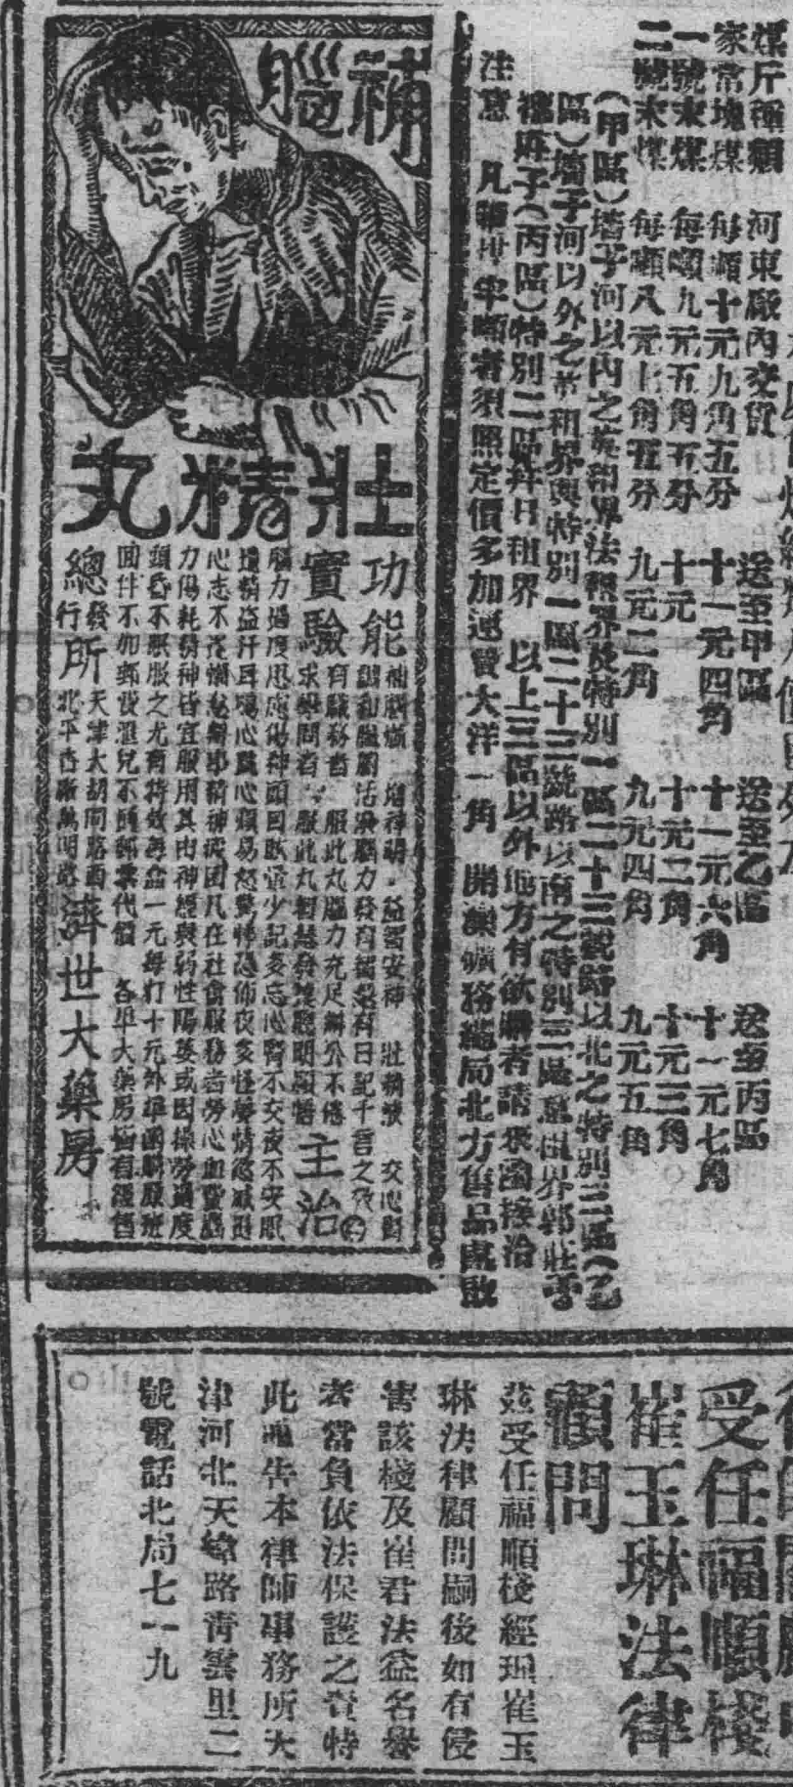 煤斤種類 河東廠內交貨 送至甲區 送至乙區 送至丙區
家常塊煤 每噸十元九角五分 十一元四角 十一元六角 十一元七角
一號末煤 每噸九元五角五分 十元 十元二角 十元三角
二號末煤 每噸八元七角五分 九元二角 九元四角 九元五角
(甲區)墻子河以內之英租界法租界及特別一區二十三號路以北之特別三區(乙
區)墻子河以外之英租界與特別一區二十三號路以南之特別三區意租界郭莊子
麻子(丙區)特別二區并日租界 以上三區以外地方有欲購者請來函接洽
注意 凡購 半噸者須照定價多加運費大洋一角 開灤礦務總局北方售品處啟
補腦
壯精丸
功能 補腦 增神明 益智安神 壯精 交心腎
調和 活潑腦力發育 有日記千言之效
實驗 有職務者 服此丸腦力充足辦公不倦
求學問者 服此丸 發達聰明 主治
腦力過度思慮傷神頭目眩暈少記多忘心腎不交夜不安眠
遺精盜汗耳鳴心跳心煩易怒驚悸恐怖夜多怪夢情慾減退
心志不 精神疲困凡在社會服務者勞心血虧腦
力傷耗精神皆宜服用其由神經衰弱性陽萎或因操勞過度
頭昏不眠服之尤有特效每盒一元每打十元外埠函購原班
回件不加郵費滙兌不通郵票代價 各埠大藥房皆有經售
總發行所 天津大胡同路西 北平香廠萬明路 濟世大藥房
受任福順棧
崔玉琳法律
顧問
茲受任福順棧經理崔玉
琳法律顧問嗣後如有侵
害該棧及崔君法益名譽
者當負依法保護之責特
此通告本律師事務所天
津河北天緯路靑雲里二
號電話北局七一九